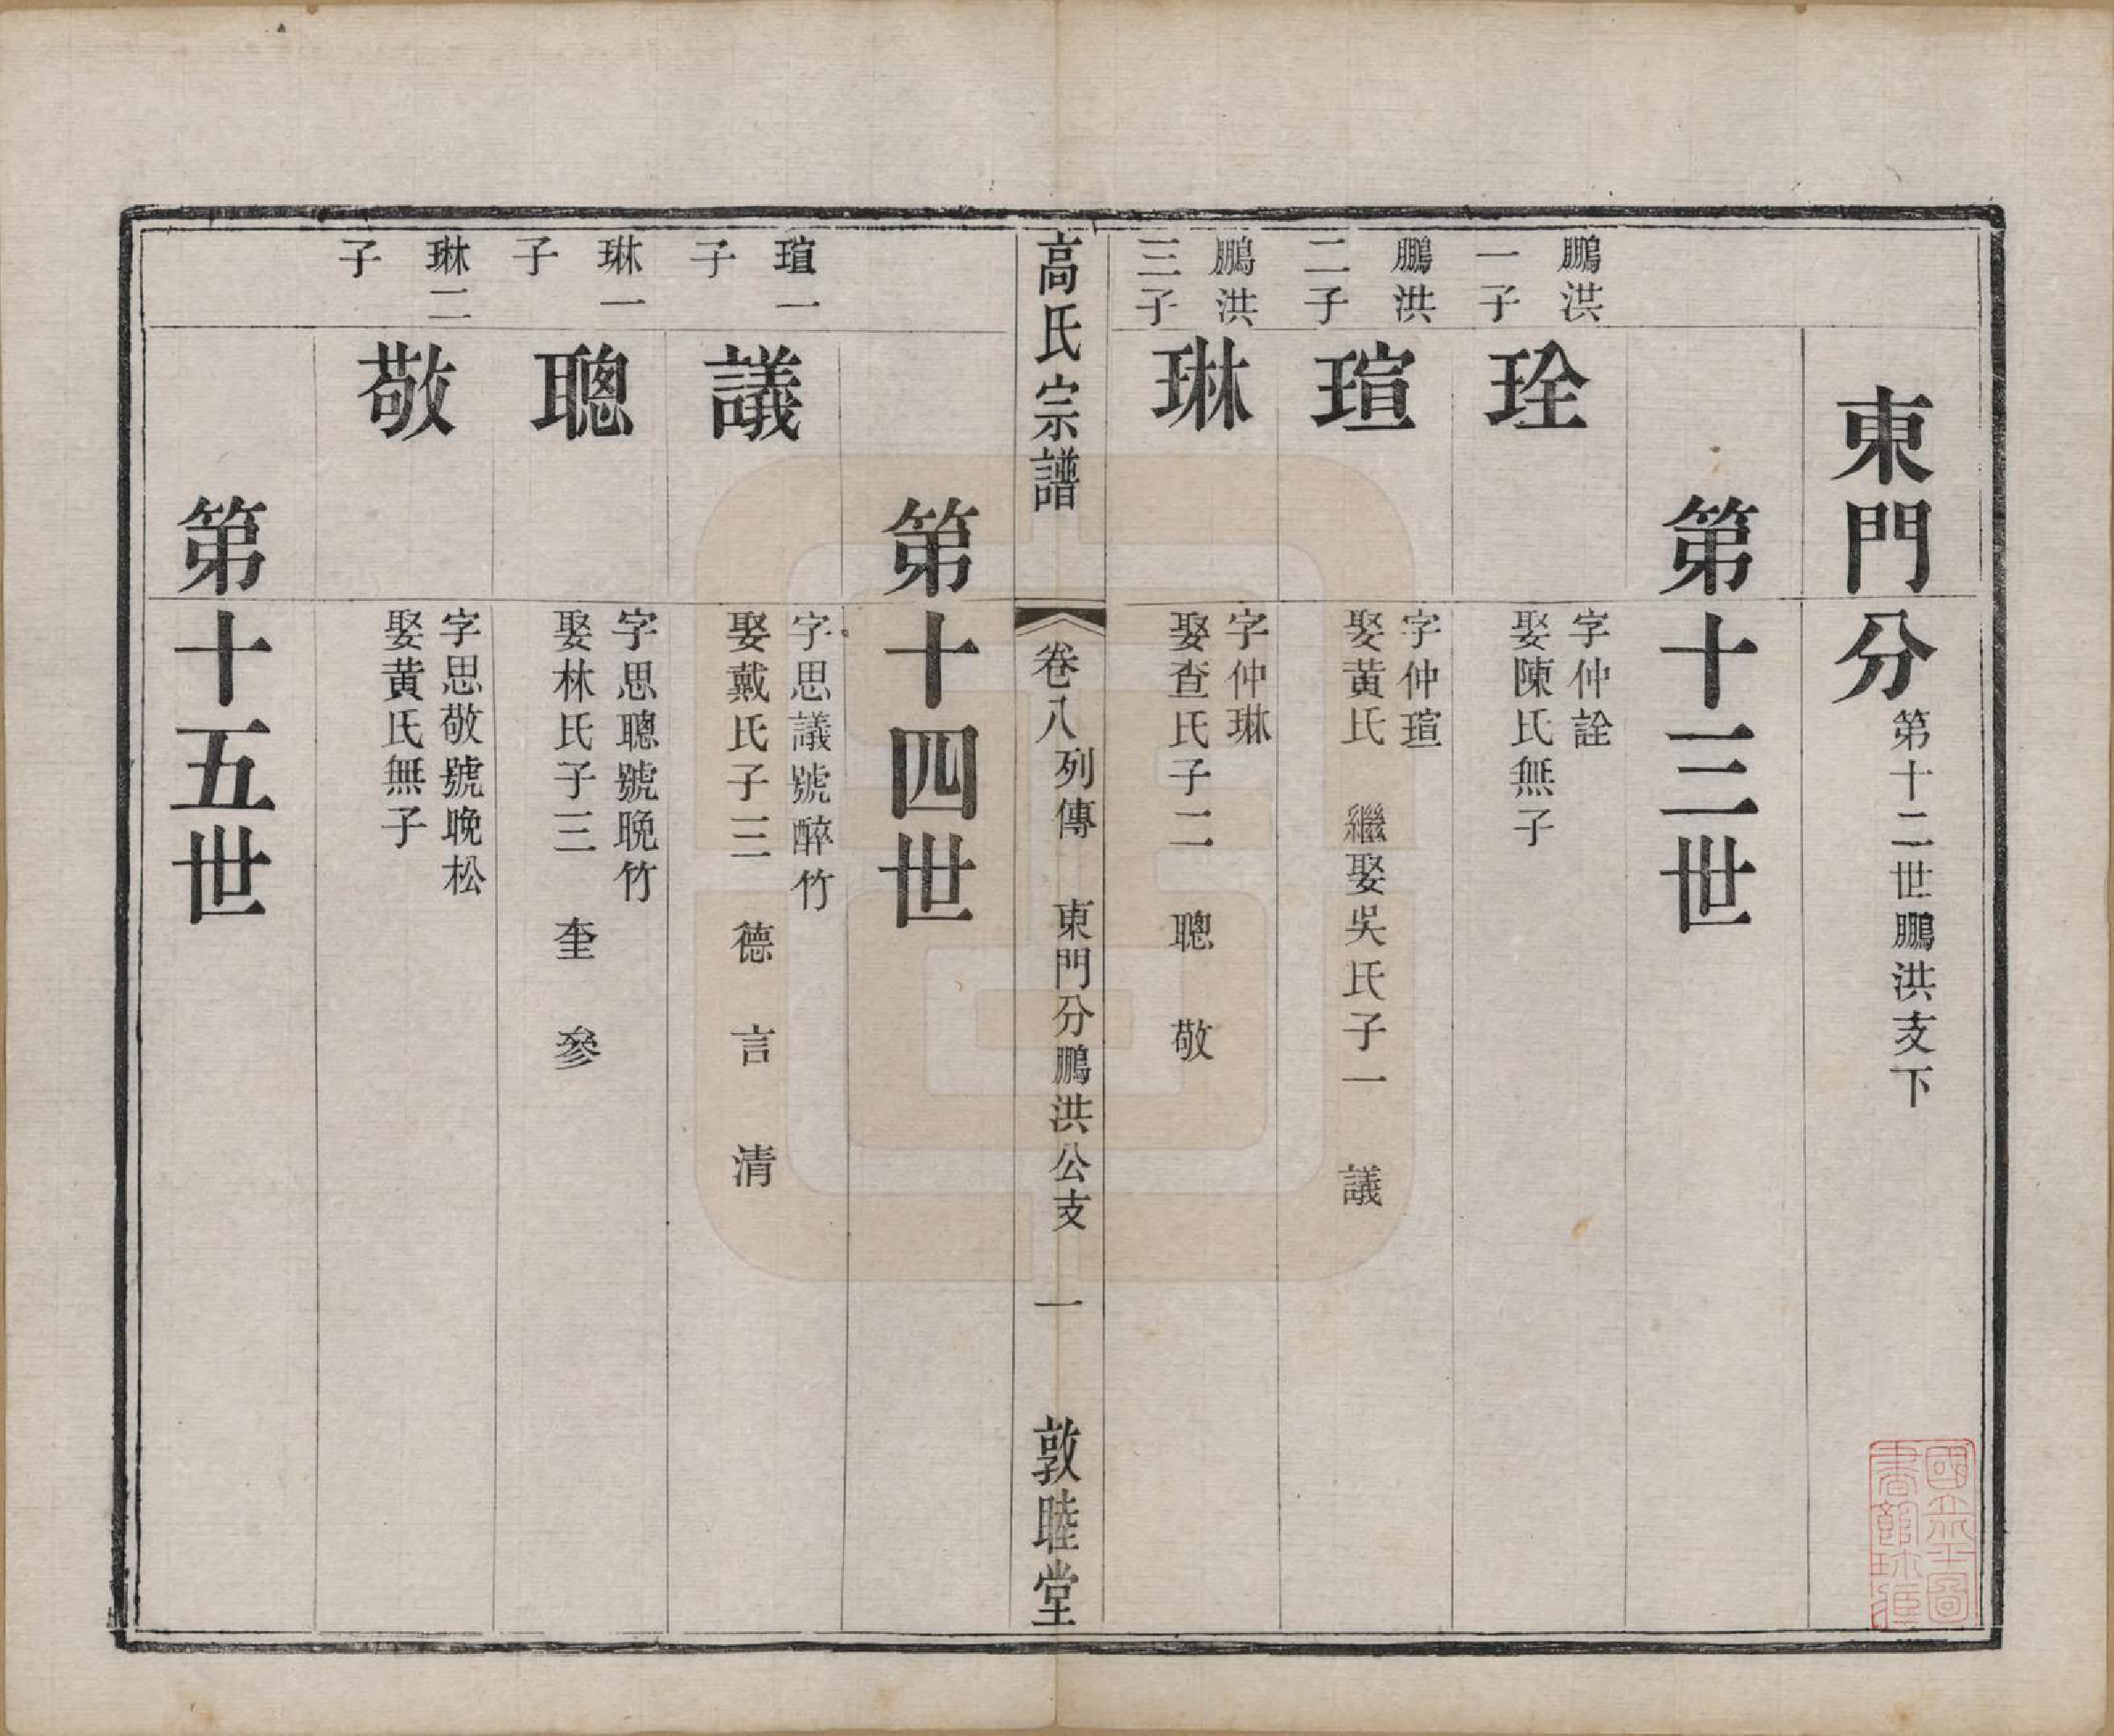 東門分 第十二世鵬洪支下
第十三世
鵬洪
一子
珍
字仲詮
娶陳氏無子
鵬洪
二子
瑄
字仲瑄
娶黄氏 繼娶吳氏子一 議
鵬洪
三子
琳
字仲琳
娶查氏子二 聰 敬
高氏宗譜 卷八 列傳 東門分鵬洪公支 一 敦睦堂
第十四世
瑄一
子
議
字思議號醉竹
娶戴氏子三 德 言 清
琳一
子
聰
字思聰號晚竹
娶林氏子三 奎 參
琳二
子
敬
字思敬號晚松
娶黄氏無子
第十五世
國立北平圖
書館珍藏